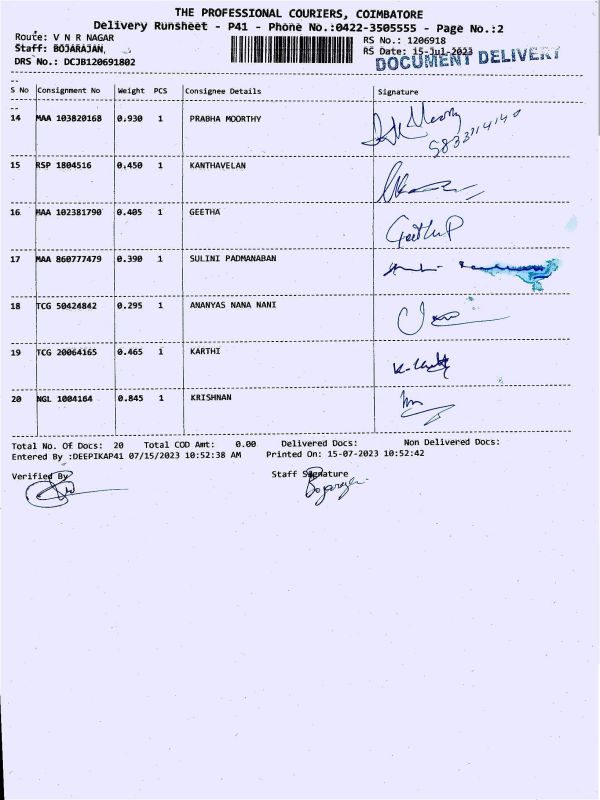 THE PROFESSIONAL COURIERS, COIMBATORE
Delivery Runsheet - P41 - Phone No.:0422-3505555 - Page No.:2
Route: V N R NAGAR
RS No.: 1206918
Staff: BOJARAJAN,
RS Date: 15-Jul-2023
DRS No.: DCJB120691802
DOCUMENT DELIVERY
S No Consignment No Weight PCS Consignee Details Signature
14 MAA 103820168 0.930 1 PRABHA MOORTHY
15 RSP 1804516 0.450 1 KANTHAVELAN
16 MAA 102381790 0.405 1 GEETHA
Geetha P
17 MAA 860777479 0.390 1 SULINI PADMANABAN
18 TCG 50424842 0.295 1 ANANYAS NANA NANI
19 TCG 20064165 0.465 1 KARTHI
20 NGL 1004164 0.845 1 KRISHNAN
Total No. Of Docs: 20 Total COD Amt: 0.00 Delivered Docs: Non Delivered Docs:
Entered By :DEEPIKAP41 07/15/2023 10:52:38 AM Printed On: 15-07-2023 10:52:42
Verified By
Staff Signature